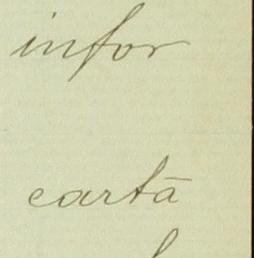 infor
cartā